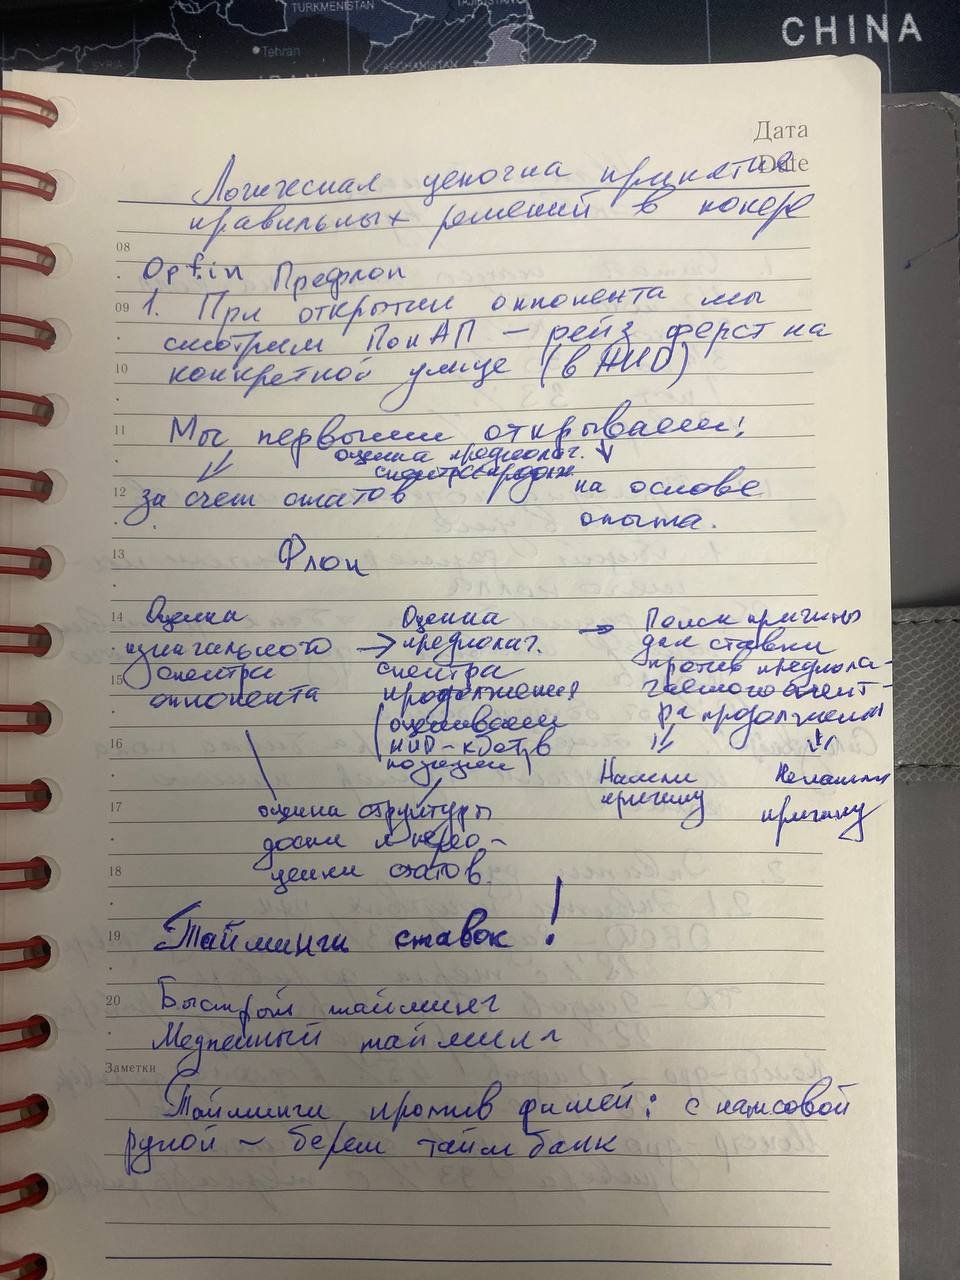 TURKMENISTAN
CHINA
Tehran
AFGHANISTAN
Дата
Date
Логическая цепочка принятие
правильных решений в покере
08
Префлоп
09
1. При открытии оппонента мы
смотрим ПонАП – рейз ферст на
10
конкретной улице (в
11
Мы первыми открываем:
оценка предполаг.
12
за счет статов
на основе
опыта.
13
Флоп
14
Оценка
изначального
спектра
оппонента
→ Оценка
предполаг.
спектра
продолжения
(оцениваем
позиции)
→ Поиск причины
для ставки
против предпола-
гаемого спект-
ра продолжения
15
16
Нашли
причину
Не нашли
причину
17
оценка структуры
доски и перео-
18
ценки статов.
19
Тайминги ставок!
20
Быстрый тайминг
Медленный тайминг
Заметки
Тайминги против фишей: с натсовой
рукой – берем тайм банк